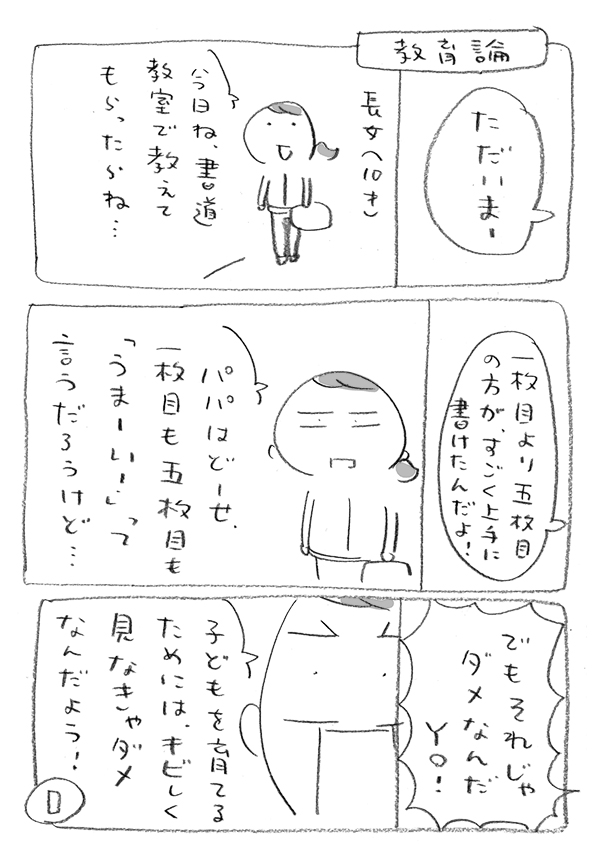 教育論
ただいまー
長女(10才)
今日ね、書道
教室で教えて
もらったらね…
一枚目より五枚目
の方が、すごく上手に
書けたんだよ!
パパはどーせ、
一枚目も五枚目も
「うまーいー」って
言うだろうけど…
でもそれじゃ
ダメなんだ
YO!
子どもを育てる
ためには、キビしく
見なきゃダメ
なんだよう!
D